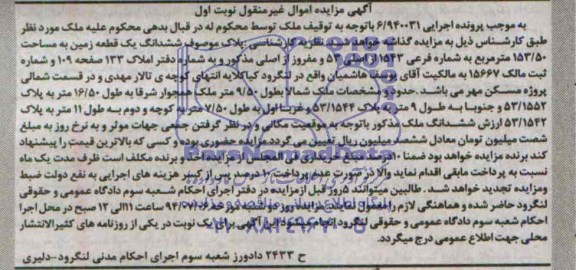 آگهی مزایده اموال غیرمنقول نوبت اول
به موجب پرونده اجرایی ۶/۹۴۰۰۳۱ باتوجه به توقیف ملک توسط محکوم له در قبال بدهی محکوم علیه ملک مورد نظر
طبق کارشناس ذیل به مزایده گذاشته خواهد شد. نظریه کارشناسی :پلاک موصوف ششدانگ یک قطعه زمین به مساحت
۱۵۳/۵۰ مترمربع به شماره فرعی ۱۵۴۳ از اصلی ۵۳ و مفروز از اصلی مذکور و به شماره دفتر املاک ۱۳۳ صفحه ۱۰۹ و شماره
ثبت مالک ۱۵۶۶۷ به مالکیت آقای یوسف هاشمیان واقع در لنگرود کیاکلایه انتهای کوچه ی تالار مهدی و در قسمت شمالی
پروژه مسکن مهر می باشد. حدود و مشخصات ملک شمالا بطول ۹/۵۰ متر ملک همجوار شرقا به طول ۱۶/۵۰ متر به پلاک
۵۳/۱۵۵۲ و جنوبا به طول ۹ متر به پلاک ۵۳/۱۵۴۴ و غربا اول به طول ۷/۵۰ متر به کوچه و دوم به طول ۱۱ متر به پلاک
۵۳/۱۵۴۲ ارزش ششدانگ ملک مذکور باتوجه به موقعیت مکانی و در نظر گرفتن جمعی جهات موثر و به نرخ روز به مبلغ
شصت میلیون تومان معادل ششصد میلیون ریال تعیین می گردد مزایده حضوری بوده و کسی که بالاترین قیمت را پیشنهاد
کند برنده مزایده خواهد بود ضمنا ۱۰درصد مبلغ پیشنهادی فی المجلس از برنده مزایده اخذ و برنده مکلف است ظرف مدت یک ماه
نسبت به پرداخت مابقی اقدام نماید والا در صورت عدم پرداخت ۱۰ درصد پس از کسر هزینه های اجرایی به نفع دولت ضبط
ومزایده تجدید خواهد شد. طالبین میتوانند ۵روز قبل از مزایده در دفتر اجرای احکام شعبه سوم دادگاه عمومی و حقوقی
لنگرود حاضر شده و هماهنگی لازم را معمول نمایند. مزایده روز دوشنبه مورخه ۹۴/ ساعت ۱۱الی ۱۲ صبح در محل اجرا
احکام شعبه سوم دادگاه عمومی و حقوقی لنگرود انجام میگردد این آگهی برای یک نوبت در یکی از روزنامه های کثیرالانتشار
محلی جهت اطلاع عمومی درج میگردد.
ح ۲۴۳۳ دادورز شعبه سوم اجرای احکام مدنی لنگرود-دلیری